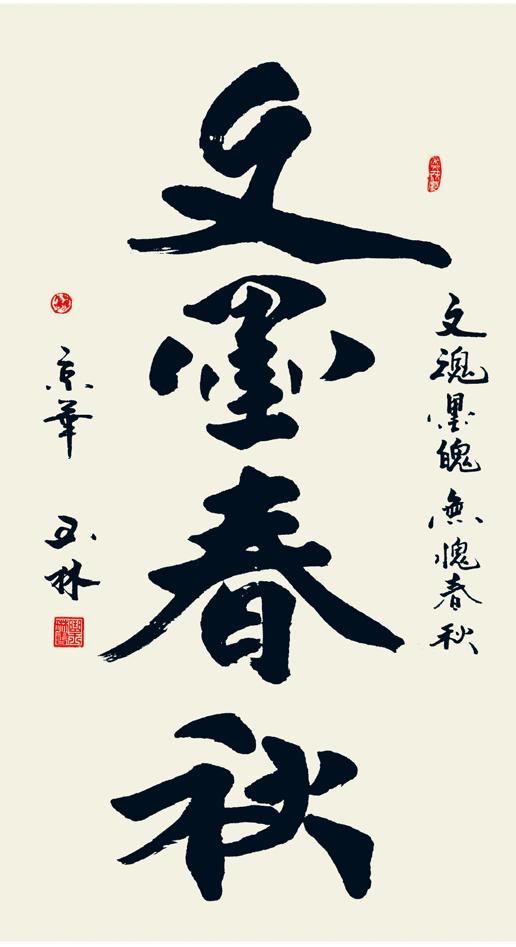 文魂墨魄無愧春秋
文墨春秋
京華 玉林